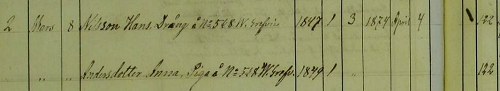 2 Mars 8 Nilsson Hans, Dräng å No 5&8 W. 1847 1 3 1874 April 4 122
" " Andersdotter Anna, Piga å No 5&8 W. 1849 1 122